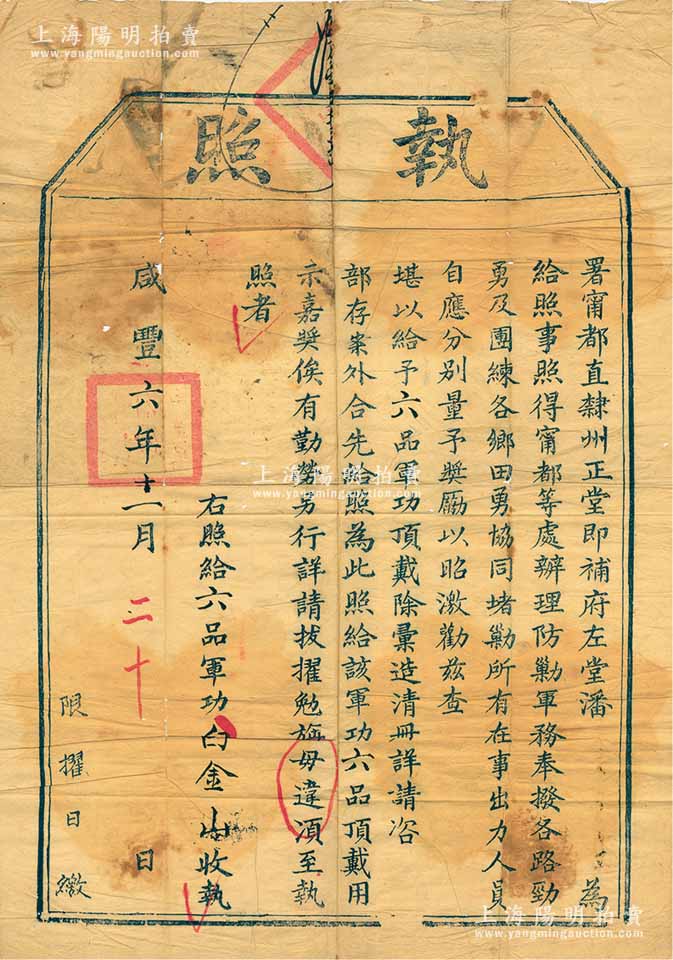 上海陽明拍賣
www.yangmingauction.com
執照
署甯都直隸州正堂即補府左堂潘 為
給照事照得甯都等處辦理防勦軍務奉撥各路勁
勇及團練各鄉田勇協同堵勦所有在事出力人員
自應分別量予奬勵以昭激勸茲查
堪以給予六品軍功頂戴除彙造清冊詳請咨
部存案外合先給照為此照給該軍功六品頂戴用
示嘉奬俟有勤勞另行詳請拔擢勉旃毋違須至執
照者
右照給六品軍功 金山收執
咸豐六年十一月二十日
限擢日繳
上海陽明拍賣
www.yangmingauction.com
上海陽明拍賣
www.yangmingauction.com